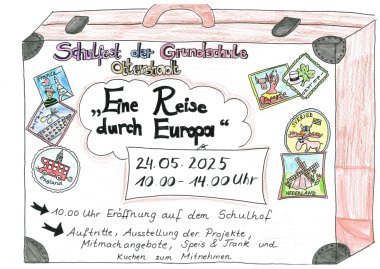 Schulfest der Grundschule
Otterstadt
„Eine Reise
durch Europa"
24.05.2025
10.00 - 14.00 Uhr
England
NEDERLAND
10.00 Uhr Eröffnung auf dem Schulhof
Auftritte, Ausstellung der Projekte,
Mitmachangebote, Speis & Trank und
Kuchen zum Mitnehmen